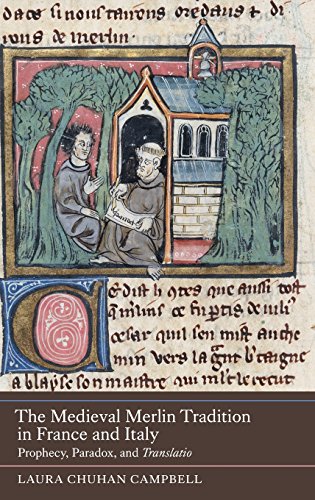 dace si nous tairons ore dans et di
rons de merlin.
Ce dist li contes que aussi tost
cesar quil sen mist au che
min vers la grant bretaigne
a blayse son maistre qui
The Medieval Merlin Tradition
in France and Italy
Prophecy, Paradox, and Translatio
LAURA CHUHAN CAMPBELL